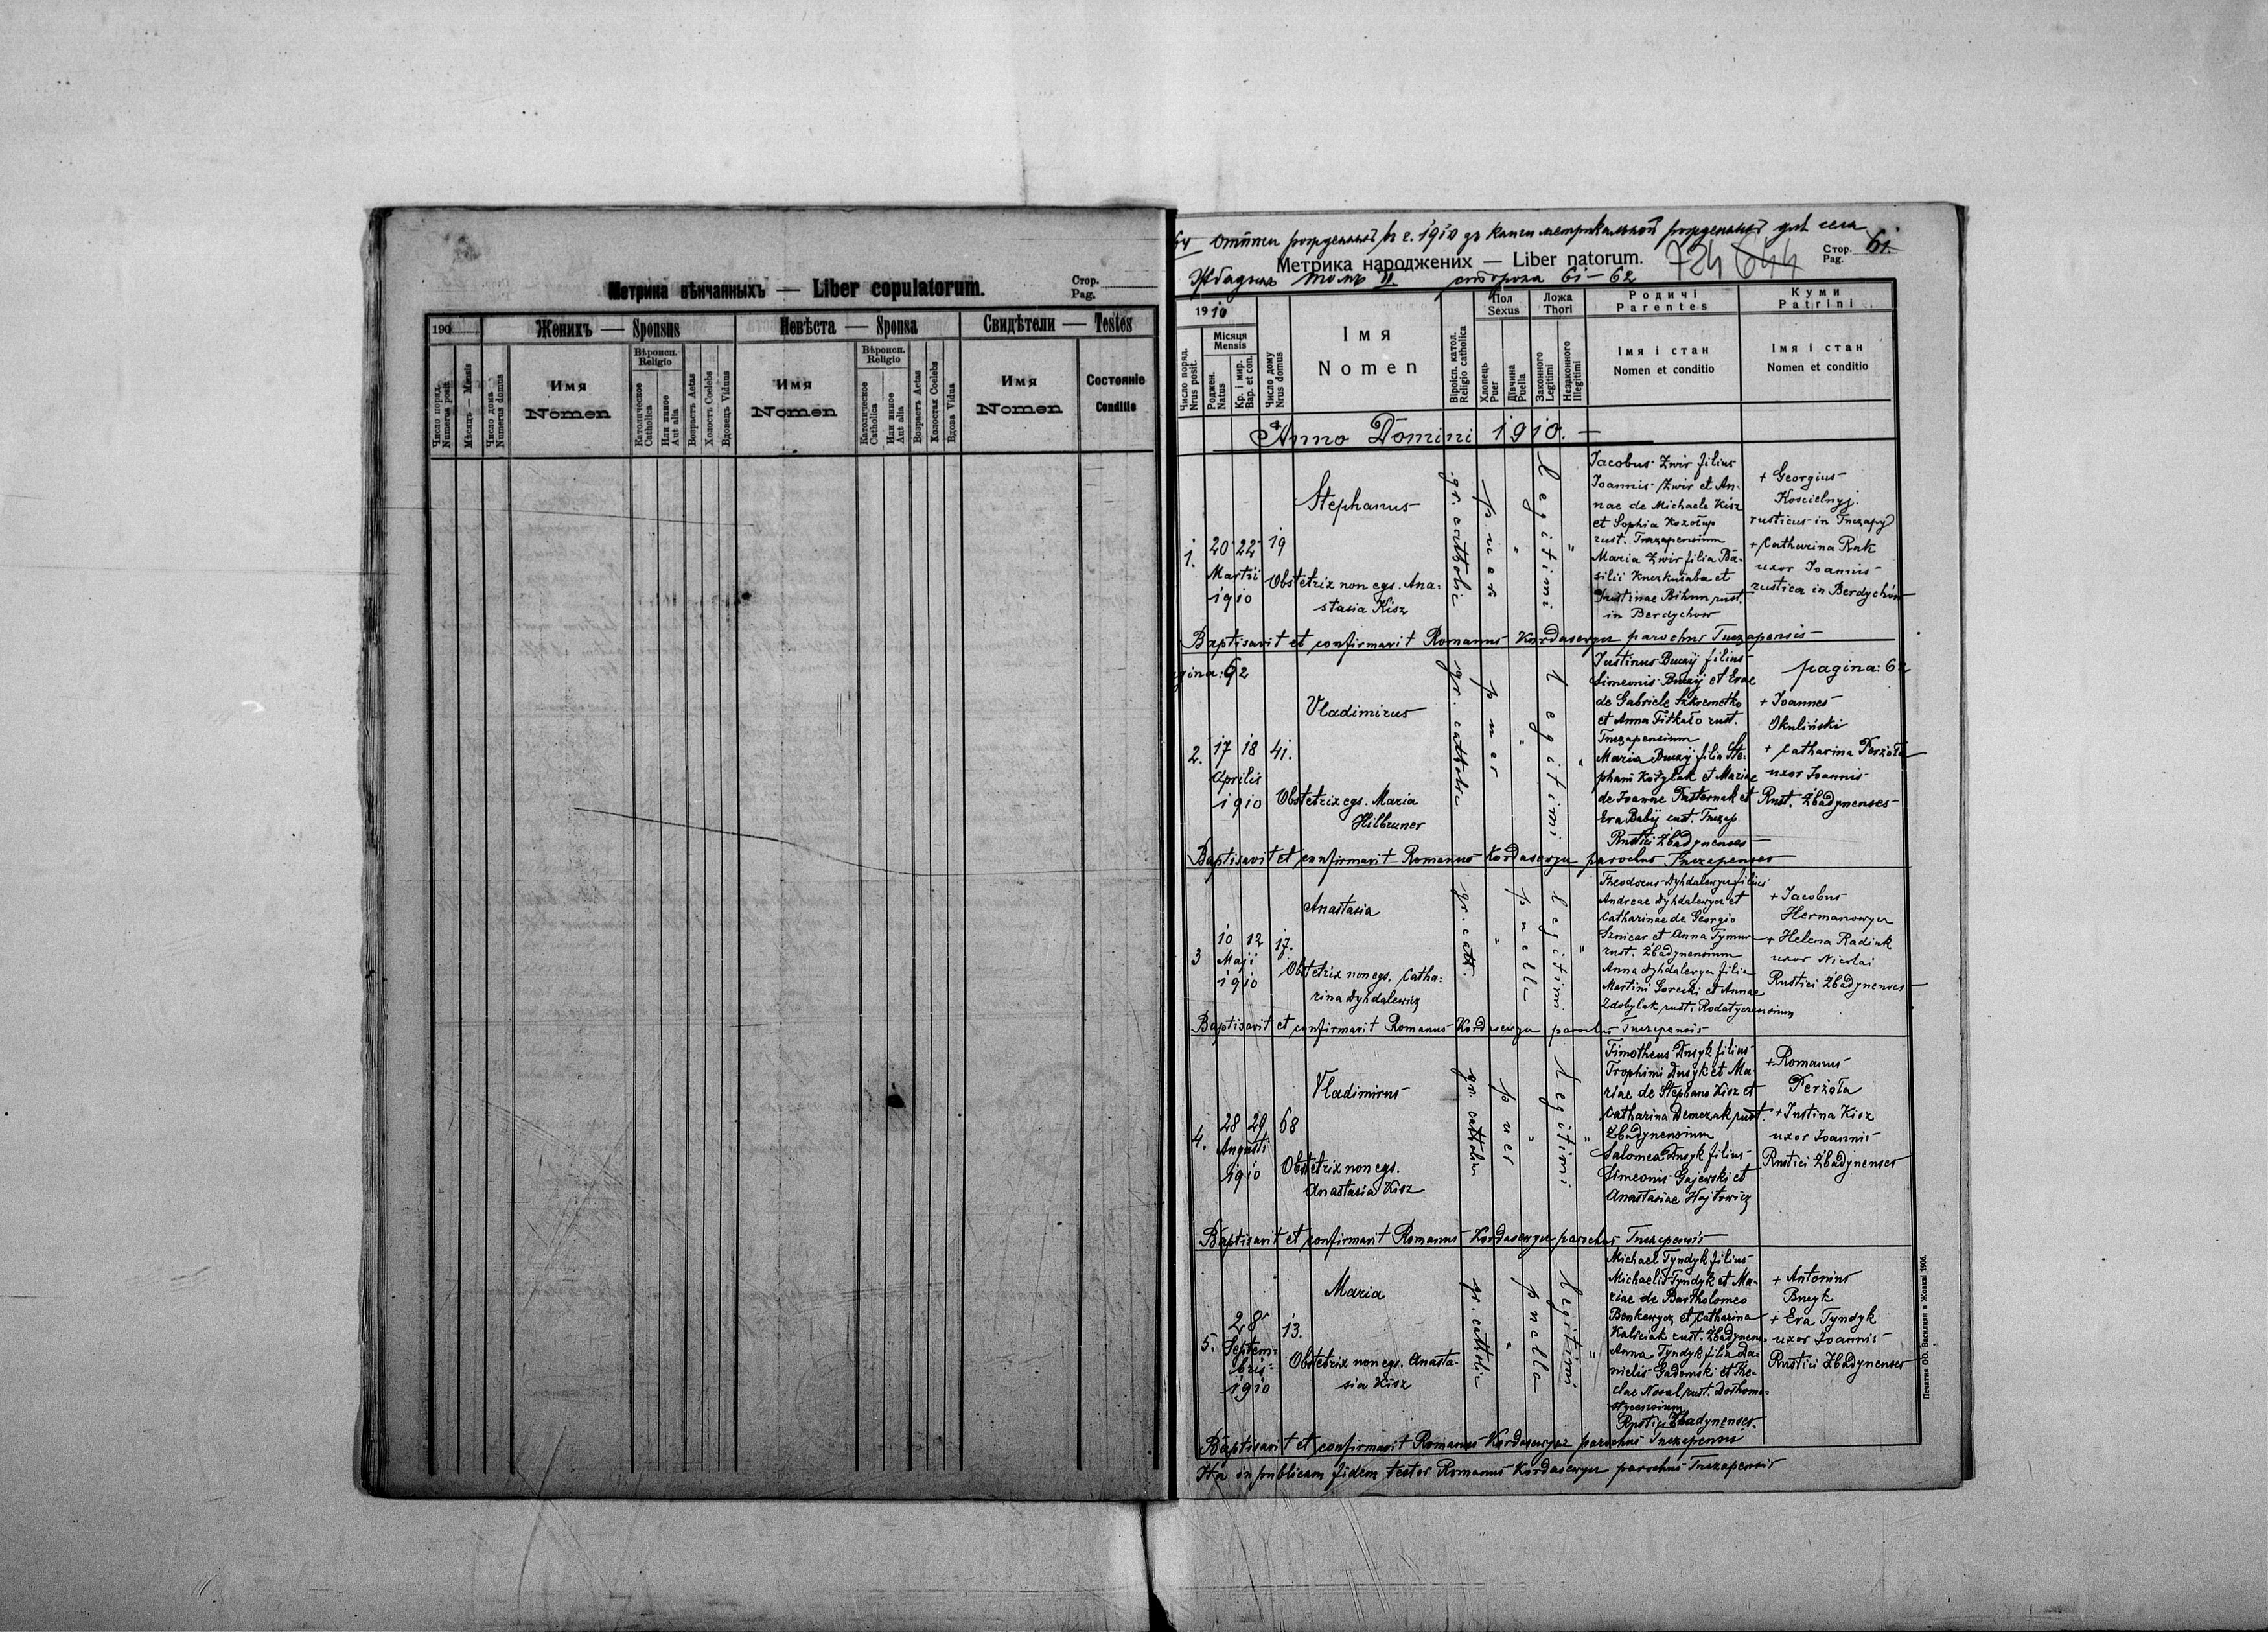 Метрика вѣнчанныхъ — Liber copulatorum.
Стор.
Pag.
190
Женихъ — Sponsus
Невѣста — Sponsa
Свидѣтели — Testes
Число поряд.
Numerus posit
Мѣсяцъ — Mensis
Число дома
Numerus domus
Имя
Nomen
Вѣроисп.
Religio
Католическое
Catholica
Или инное
Aut alia
Возрастъ Aetas
Холостъ Coelebs
Вдовецъ Viduus
Имя
Nomen
Вѣроисп.
Religio
Католическое
Catholica
Или инное
Aut alia
Возрастъ Aetas
Холостая Coelebs
Вдова Vidua
Имя
Nomen
Состояніе
Conditio
Метрика народжених — Liber natorum.
724 644
Стор.
Pag.
61.
томъ II. сторона 61–62
1910
Число поряд.
Nrus posit.
Місяця
Mensis
Роджен.
Natus
Кр. і мир.
Bap. et con.
Число дому
Nrus domus
Імя
Nomen
Віроісп. катол.
Religio catholica
Пол
Sexus
Хлопець
Puer
Дївчина
Puella
Ложа
Thori
Законного
Legitimi
Незаконного
Illegitimi
Родичі
Parentes
Імя і стан
Nomen et conditio
Куми
Patrini
Імя і стан
Nomen et conditio
Anno Domini 1910. —
1.
20 22
Martii
1910
19
Stephanus
Obstetrix non egs. Ana-
stasia Kisz
gr. catholic
puer
"
legitimi
"
Jacobus Zwir filius
Joannis Zwir et An-
nae de Michaele Kisz
et Sophia Kozołup
rust. Tuczapensium
Maria Zwir filia Ba-
silii et
Justinae Bihun rust.
in Berdychow
+ Georgius
Koscielnyj
rusticus in Tuczapy
+ Catharina Ruk
uxor Joannis
rustica in Berdychów
Baptisavit et confirmavit Romanus Kordasewycz parochus Tuczapensis
pagina: 62
2.
17 18
Aprilis
1910
41.
Vladimirus
Obstetrix egs. Maria
Hilbruner
gr. catholic
puer
"
legitimi
"
Justinus Buczij filius
Simeonis Buczij et Evae
de Gabriele Szkremetko
et Anna Titkało rust.
Tuczapensium
Maria Buczij filia Ste-
phani Kotylak et Mariae
de Joanne Pasternak et
Eva Babij rust. Tuczap.
Rustici Zbadynenses
pagina: 62
+ Joannes
Okuliński
+ Catharina Perżoła
uxor Joannis
Rust. Zbadynenses
Baptisavit et confirmavit Romanus Kordasewycz parochus Tuczapensis
3
10 12
Maji
1910
17.
Anastasia
Obstetrix non egs. Catha-
rina Dyhdalewicz
gr. cath.
"
puella
legitimi
"
Theodorus Dyhdalewycz filius
Andreae Dyhdalewycz et
Catharinae de Georgio
Sznicar et Anna Tymur
rust. Zbadynensium
Anna Dyhdalewycz filia
Martini Gorecki et Annae
Zdobylak rust. Rodatyczensium
+ Jacobus
Hermanowycz
+ Helena Radiuk
uxor Nicolai
Rustici Zbadynenses
Baptisavit et confirmavit Romanus Kordasewycz parochus Tuczapensis
4.
28 29
Augusti
1910
68
Vladimirus
Obstetrix non egs.
Anastasia Kisz
gr. catholic
puer
"
legitimi
"
Timotheus Dusyk filius
Trophimi Dusyk et Ma-
riae de Stephano Kisz et
Catharina Demczak rust.
Zbadynensium
Salomea Dusyk filius
Simeonis Gajewski et
Anastasiae Hojtowicz
+ Romanus
Perżoła
+ Justina Kisz
uxor Joannis
Rustici Zbadynenses
Baptisavit et confirmavit Romanus Kordasewycz parochus Tuczapensis
5.
28
Septem-
bris
1910
13.
Maria
Obstetrix non egs. Anasta-
sia Kisz
gr. catholic
"
puella
legitimi
"
Michael Tyndyk filius
Michaelis Tyndyk et Ma-
riae de Bartholomeo
Benkewycz et Catharina
Kaliciak rust. Zbadynens.
Anna Tyndyk filia Da-
nielis Gadomski et The-
clae Nowal rust. Dołhomo-
stycensium
Rustici Zbadynenses
+ Antonius
Buczk
+ Eva Tyndyk
uxor Joannis
Rustici Zbadynenses
Baptisavit et confirmavit Romanus Kordasewycz parochus Tuczapensis
Ita in publicam fidem testor Romanus Kordasewycz parochus Tuczapensis
Печатня ОО. Василиян в Жовкві 1906.